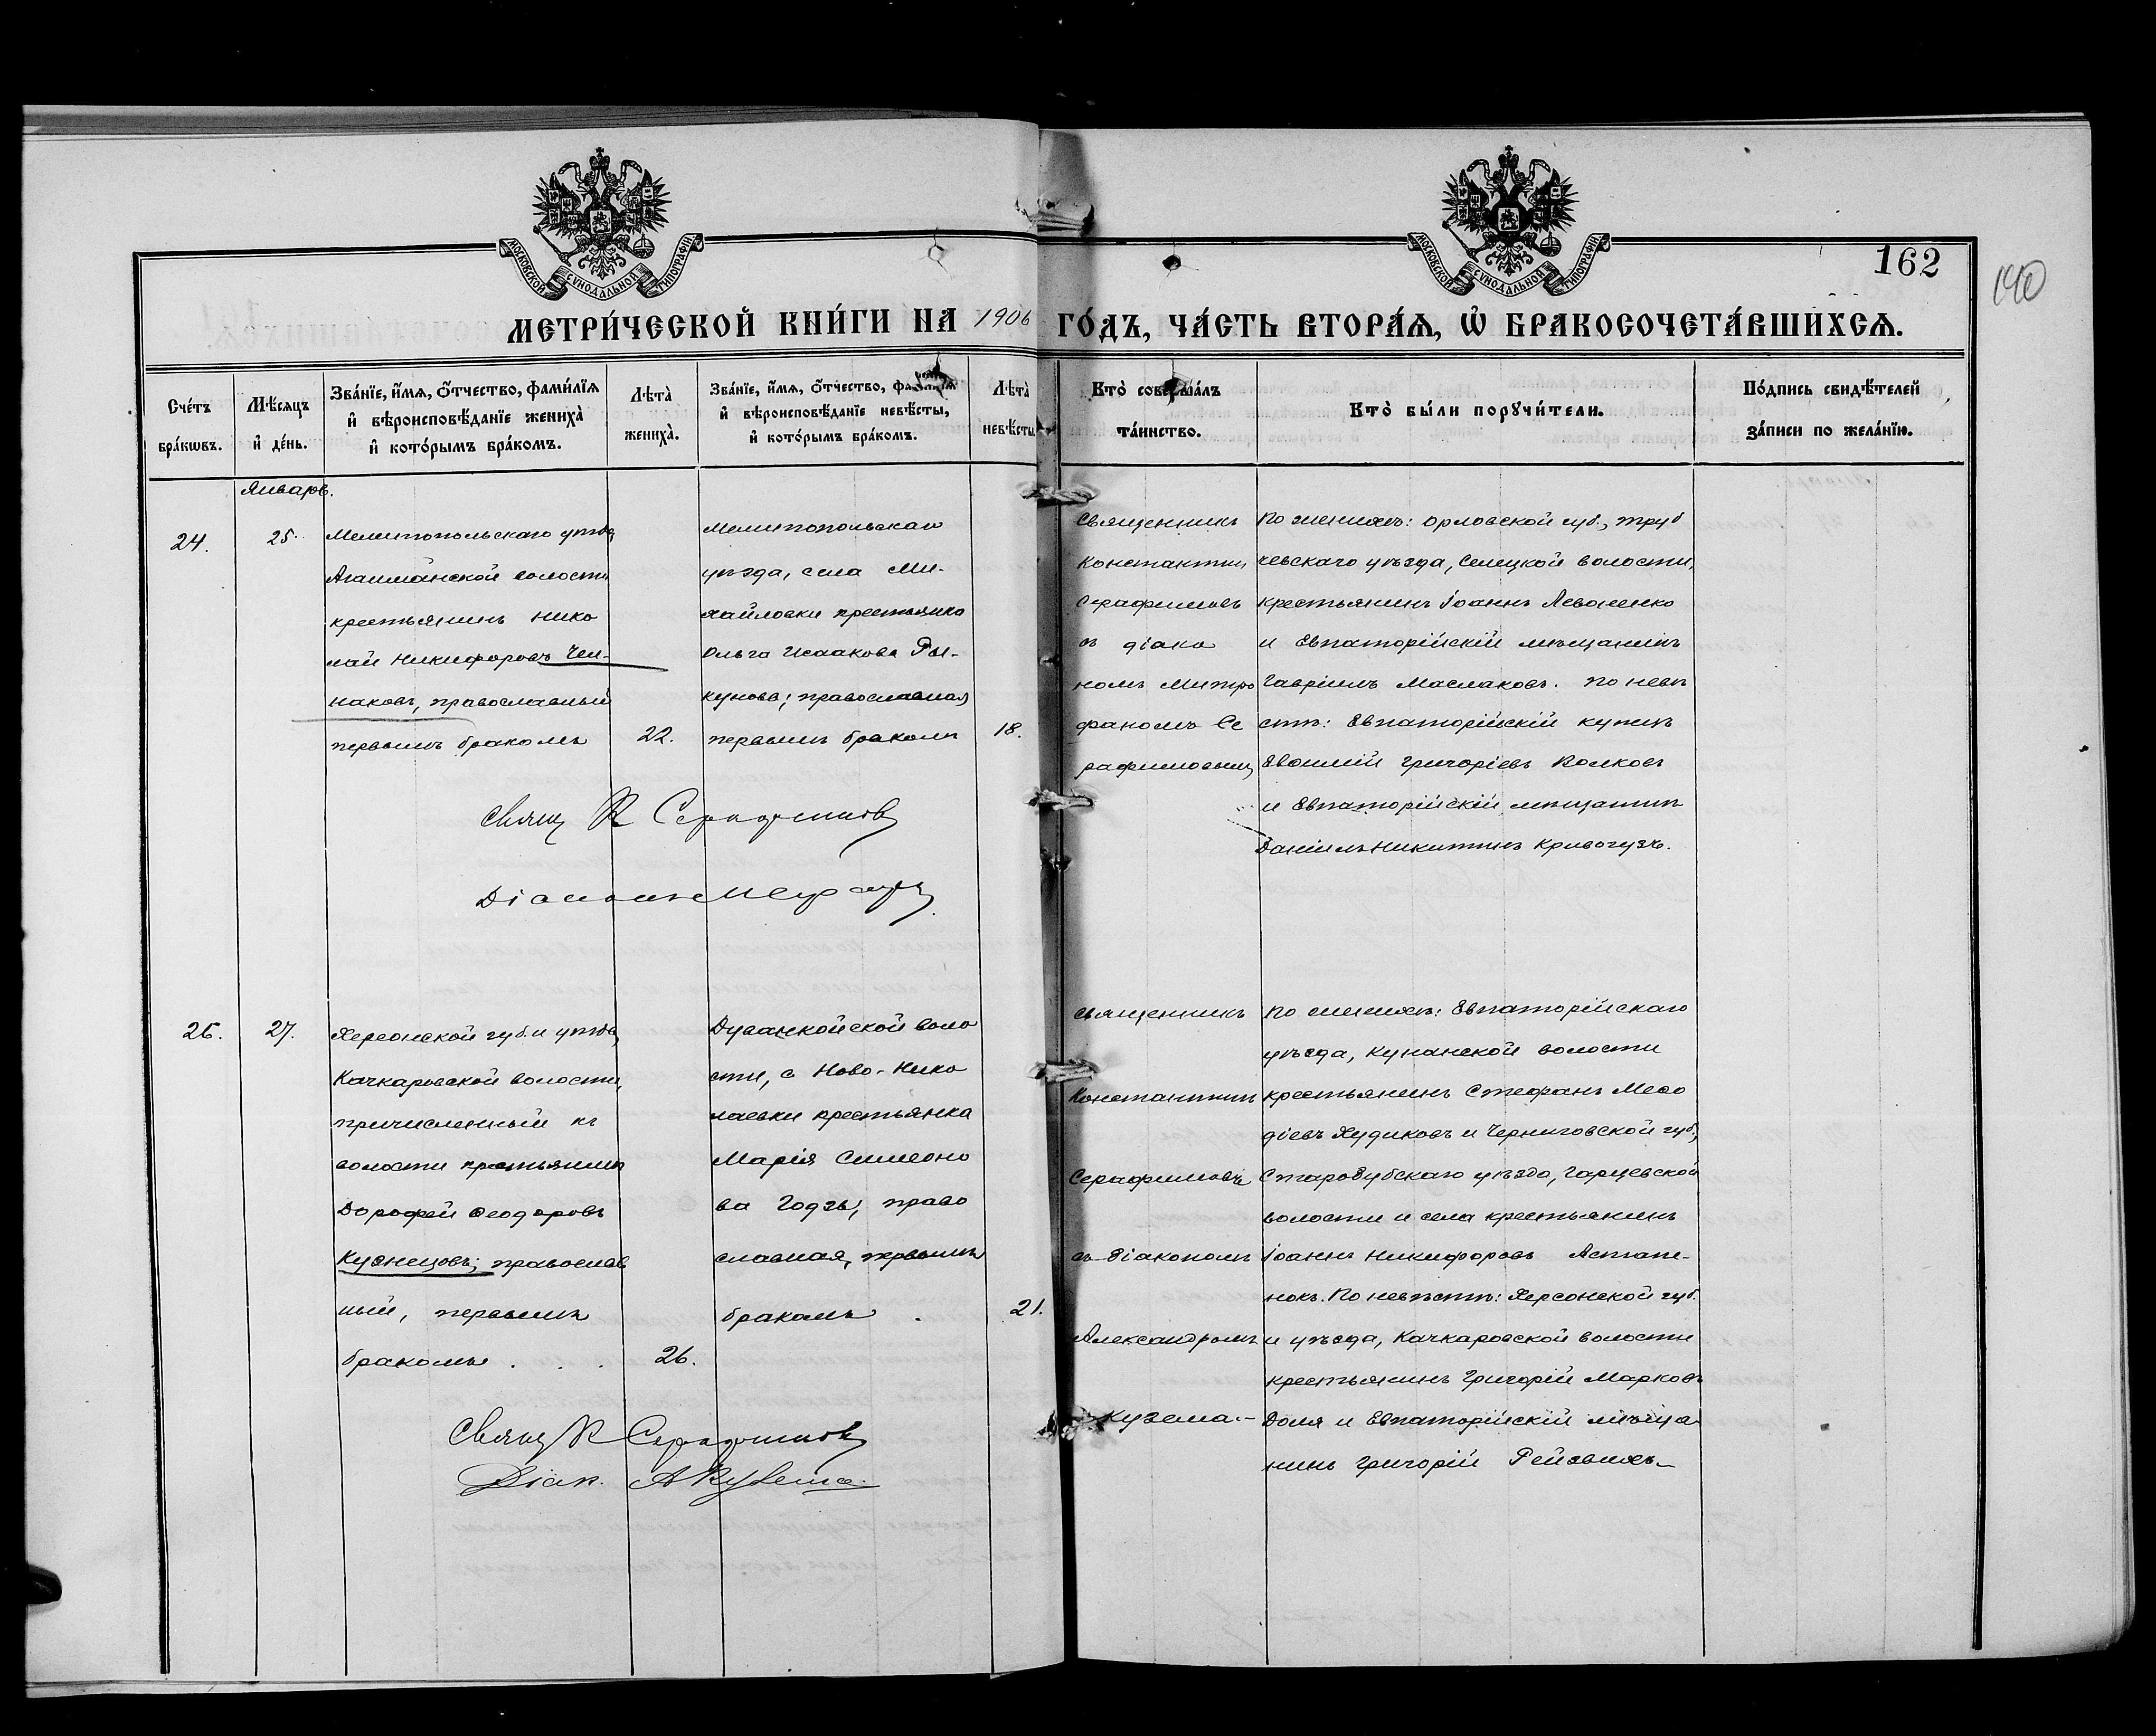 МОСКОВСКОЙ СУНОДАЛЬНОЙ ТИПОГРАФІИ
МОСКОВСКОЙ СУНОДАЛЬНОЙ ТИПОГРАФІИ
162
140
МЕТРИ́ЧЕСКОЙ КНИ́ГИ НА 1906 ГО́ДЪ, ЧА́СТЬ ВТОРА́Ѧ, Ѡ҆ БРАКОСОЧЕТА́ВШИХСѦ.
Сче́тъ
бра́кѡвъ.
Мѣ́сѧцъ
и҆ де́нь.
Зва́нїе, и҆́мѧ, ѻ҆́тчество, фами́лїѧ
и҆ вѣроисповѣ́данїе жениха̀
и҆ кото́рымъ бра́комъ.
Лѣта̀
жениха̀.
Зва́нїе, и҆́мѧ, ѻ҆́тчество, фами́лїѧ
и҆ вѣроисповѣ́данїе невѣ́сты,
и҆ кото́рымъ бра́комъ.
Лѣта̀
невѣ́сты.
Кто̀ соверша́лъ
та́инство.
Кто̀ бы́ли порꙋчи́тели.
По́дпись свидѣ́телей
за́писи по жела́нїю.
Январь.
24.
25.
Мелитопольскаго уѣзда,
Агайманской волости
крестьянинъ Нико
лай Никифоровъ Чел-
наковъ, православный
первымъ бракомъ
22.
Мелитопольскаго
уѣзда, села Ми-
хайловки крестьянка
Ольга Исаакова Ры-
кунова; православная
первымъ бракомъ
18.
Священникъ
Константинъ
Серафимовъ
съ діако
номъ Митро
фаномъ Се
рафимовымъ
По женихѣ: Орловской губ., Труб
чевскаго уѣзда, Селецкой волости,
крестьянинъ Іоаннъ Леваненко
и Евпаторійскій мѣщанинъ
Гавріилъ Маслаковъ. По невѣ
стѣ: Евпаторійскій купецъ
Евѳимій Григоріевъ Волковъ
и Евпаторійскій мѣщанинъ
Даніилъ Никитинъ Кривогузъ.
Свящ К Серафимовъ
Діаконъ
25.
27.
Херсонской губ. и уѣзда,
Качкаровской волости,
причисленный къ
волости крестьянинъ
Дорофей Ѳеодоровъ
Кузнецовъ; православ
ный, первымъ
бракомъ . . .
26.
Дусанкойской воло
сти, с Ново-Нико
лаевки крестьянка
Марія Симеоно
ва Годзь, право
славная, первымъ
бракомъ .
21.
Священникъ
Константинъ
Серафимовъ
съ діакономъ
Александромъ
Кузема.-
По женихѣ: Евпаторійскаго
уѣзда, Кунанской волости
крестьянинъ Стефанъ Меѳо
діевъ Худиковъ и Черниговской губ.,
Стародубскаго уѣзда, Гарцевской
волости и села крестьянинъ
Іоаннъ Никифоровъ Астапе-
нокъ. По невѣстѣ: Херсонской губ.
и уѣзда, Качкаровской волости
крестьянинъ Григорій Марковъ
Доля и Евпаторійскій мѣща
нинъ Григорій
Свящ К Серафимовъ
Діак. А Кузема.